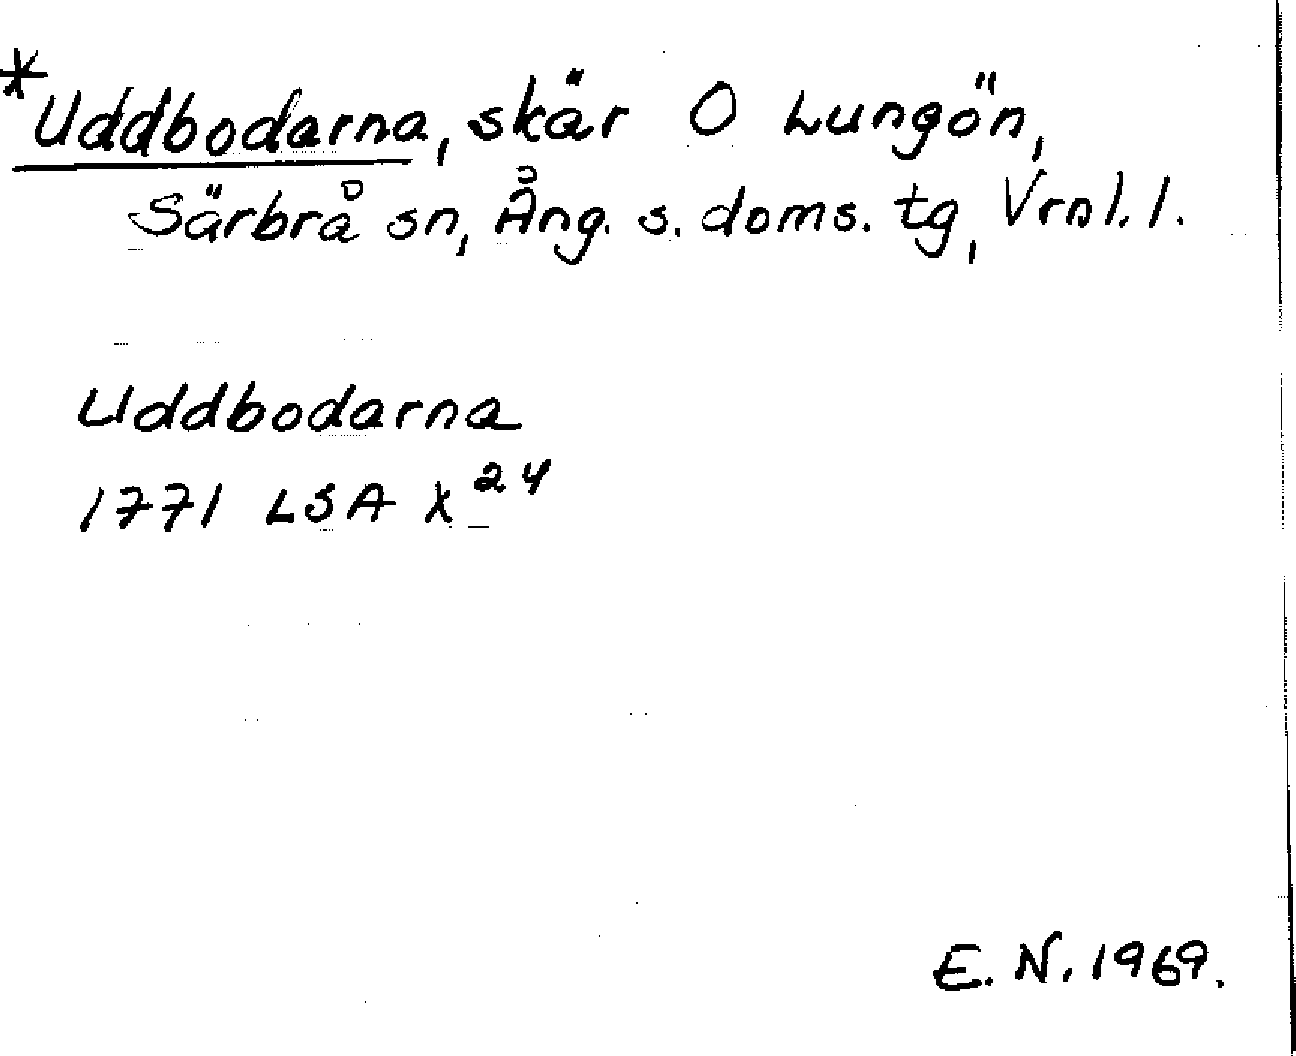 *Uddbodarna, skär O Lungön,
Särbrå sn, Ång. s. doms. tg, Vrnl. l.
Uddbodarna
1771 LSA X 24
E. N. 1969.